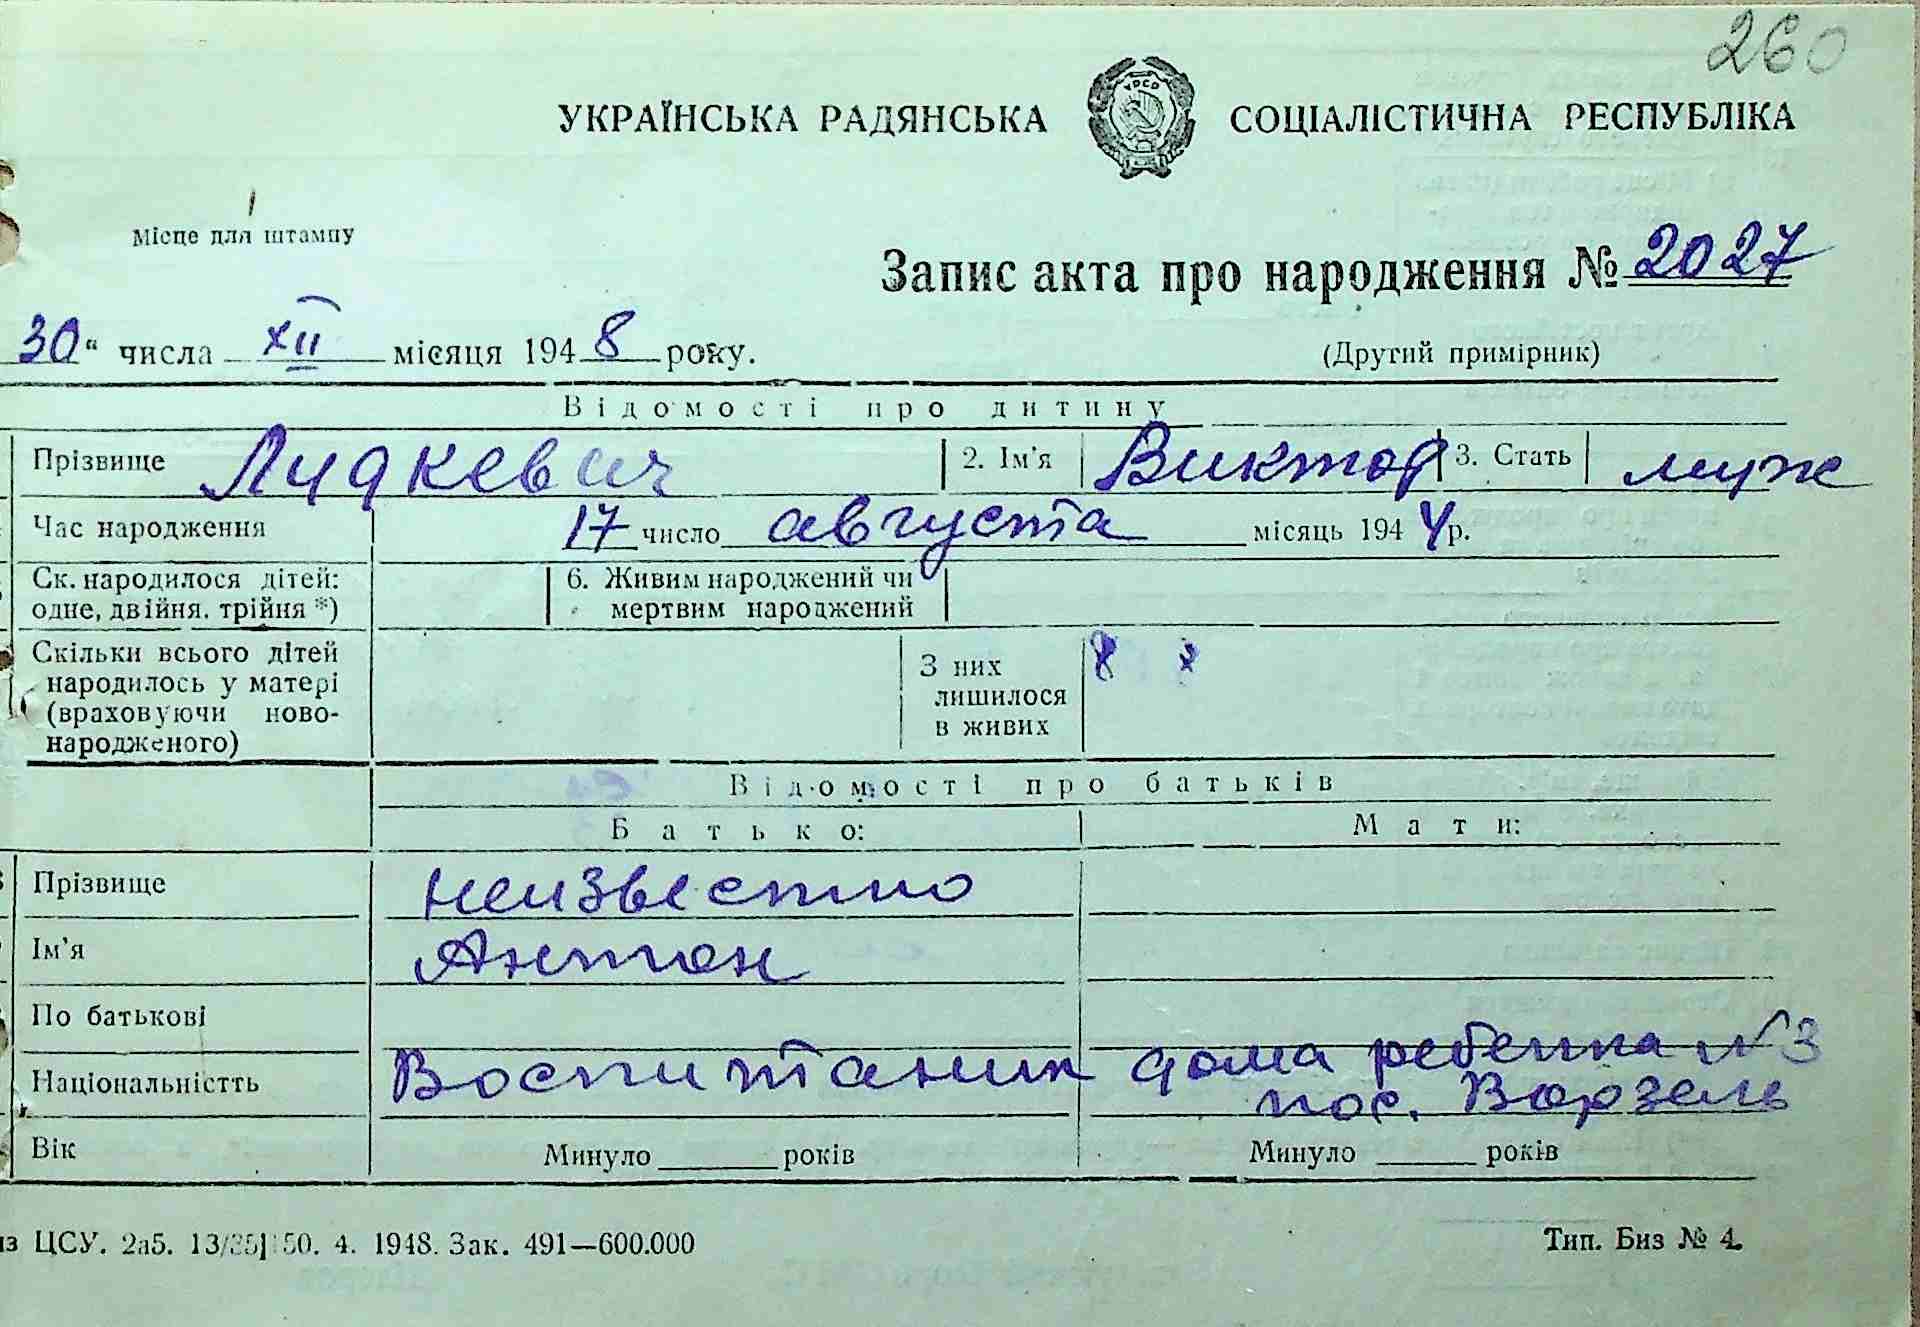 260
УКРАЇНСЬКА РАДЯНСЬКА СОЦІАЛІСТИЧНА РЕСПУБЛІКА
УРСР
Місце для штампу
Запис акта про народження № 2027
30“ числа XII місяця 1948 року.
(Другий примірник)
Відомості про дитину
Прізвище Лидкевич 2. Ім'я Виктор 3. Стать муж
Час народження 17 число августа місяць 1944 р.
Ск. народилося дітей: одне, двійня, трійня *) 6. Живим народжений чи мертвим народжений
Скільки всього дітей народилось у матері (враховуючи ново-народженого) З них лишилося в живих
Відомості про батьків
Батько: Мати:
Прізвище неизвестно
Ім'я Антон
По батькові
Національністть Воспитаник дома ребенка №3
пос. Ворзель
Вік Минуло ______ років Минуло ______ років
ЦСУ. 2а5. 13/ 50. 4. 1948. Зак. 491—600.000 Тип. Биз № 4.